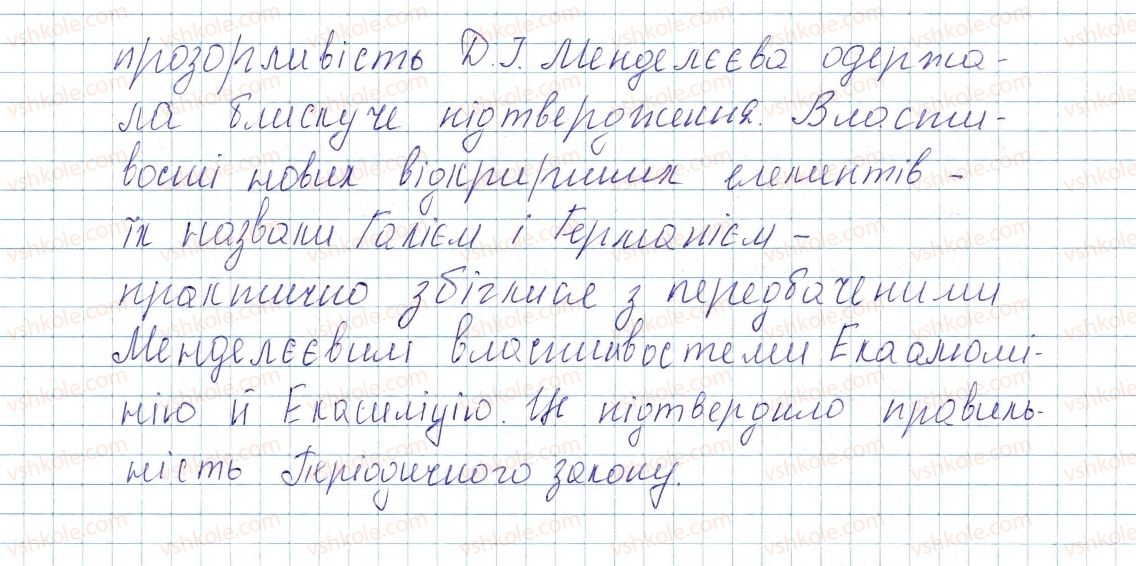 прозорливість Д.І. Менделєєва одержа-
ла блискуче підтвердження. Власти-
вості нових відкритих елементів -
їх назвали Галієм і Германієм -
практично збіглися з передбаченими
Менделєєвим властивостями Екаалюмі-
нію й Екасиліцію. Це підтвердило правиль-
ність Періодичного закону.